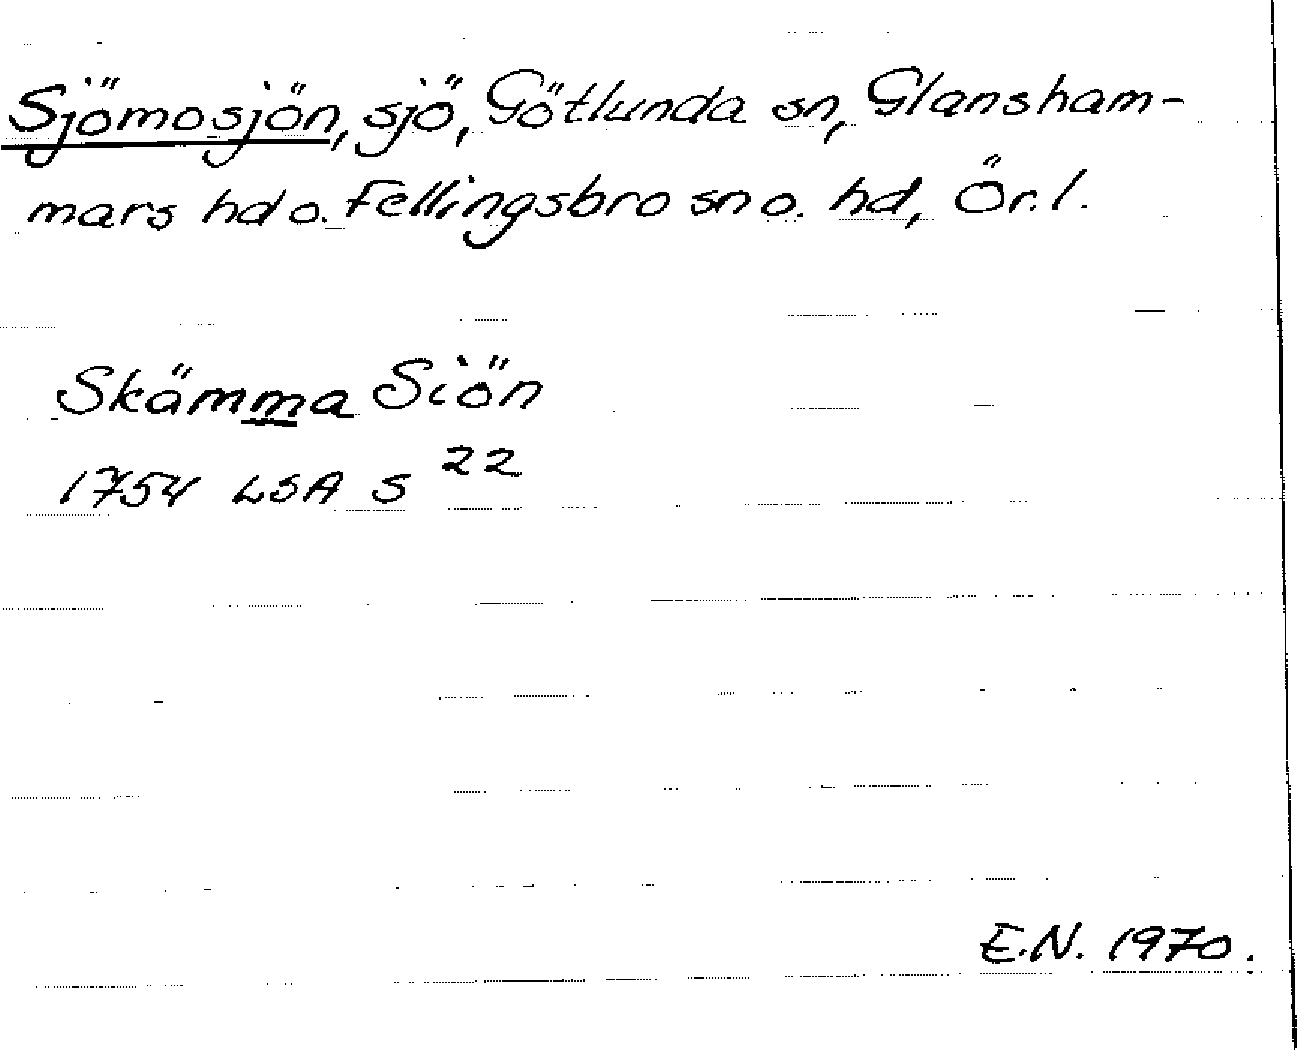 Sjömosjön, sjö, Götlunda sn, Glansham-
mars hd o. Fellingsbro sn o. hd, Ör. l.
Skämma Siön
1754 LSA S 22
E.N. 1970.